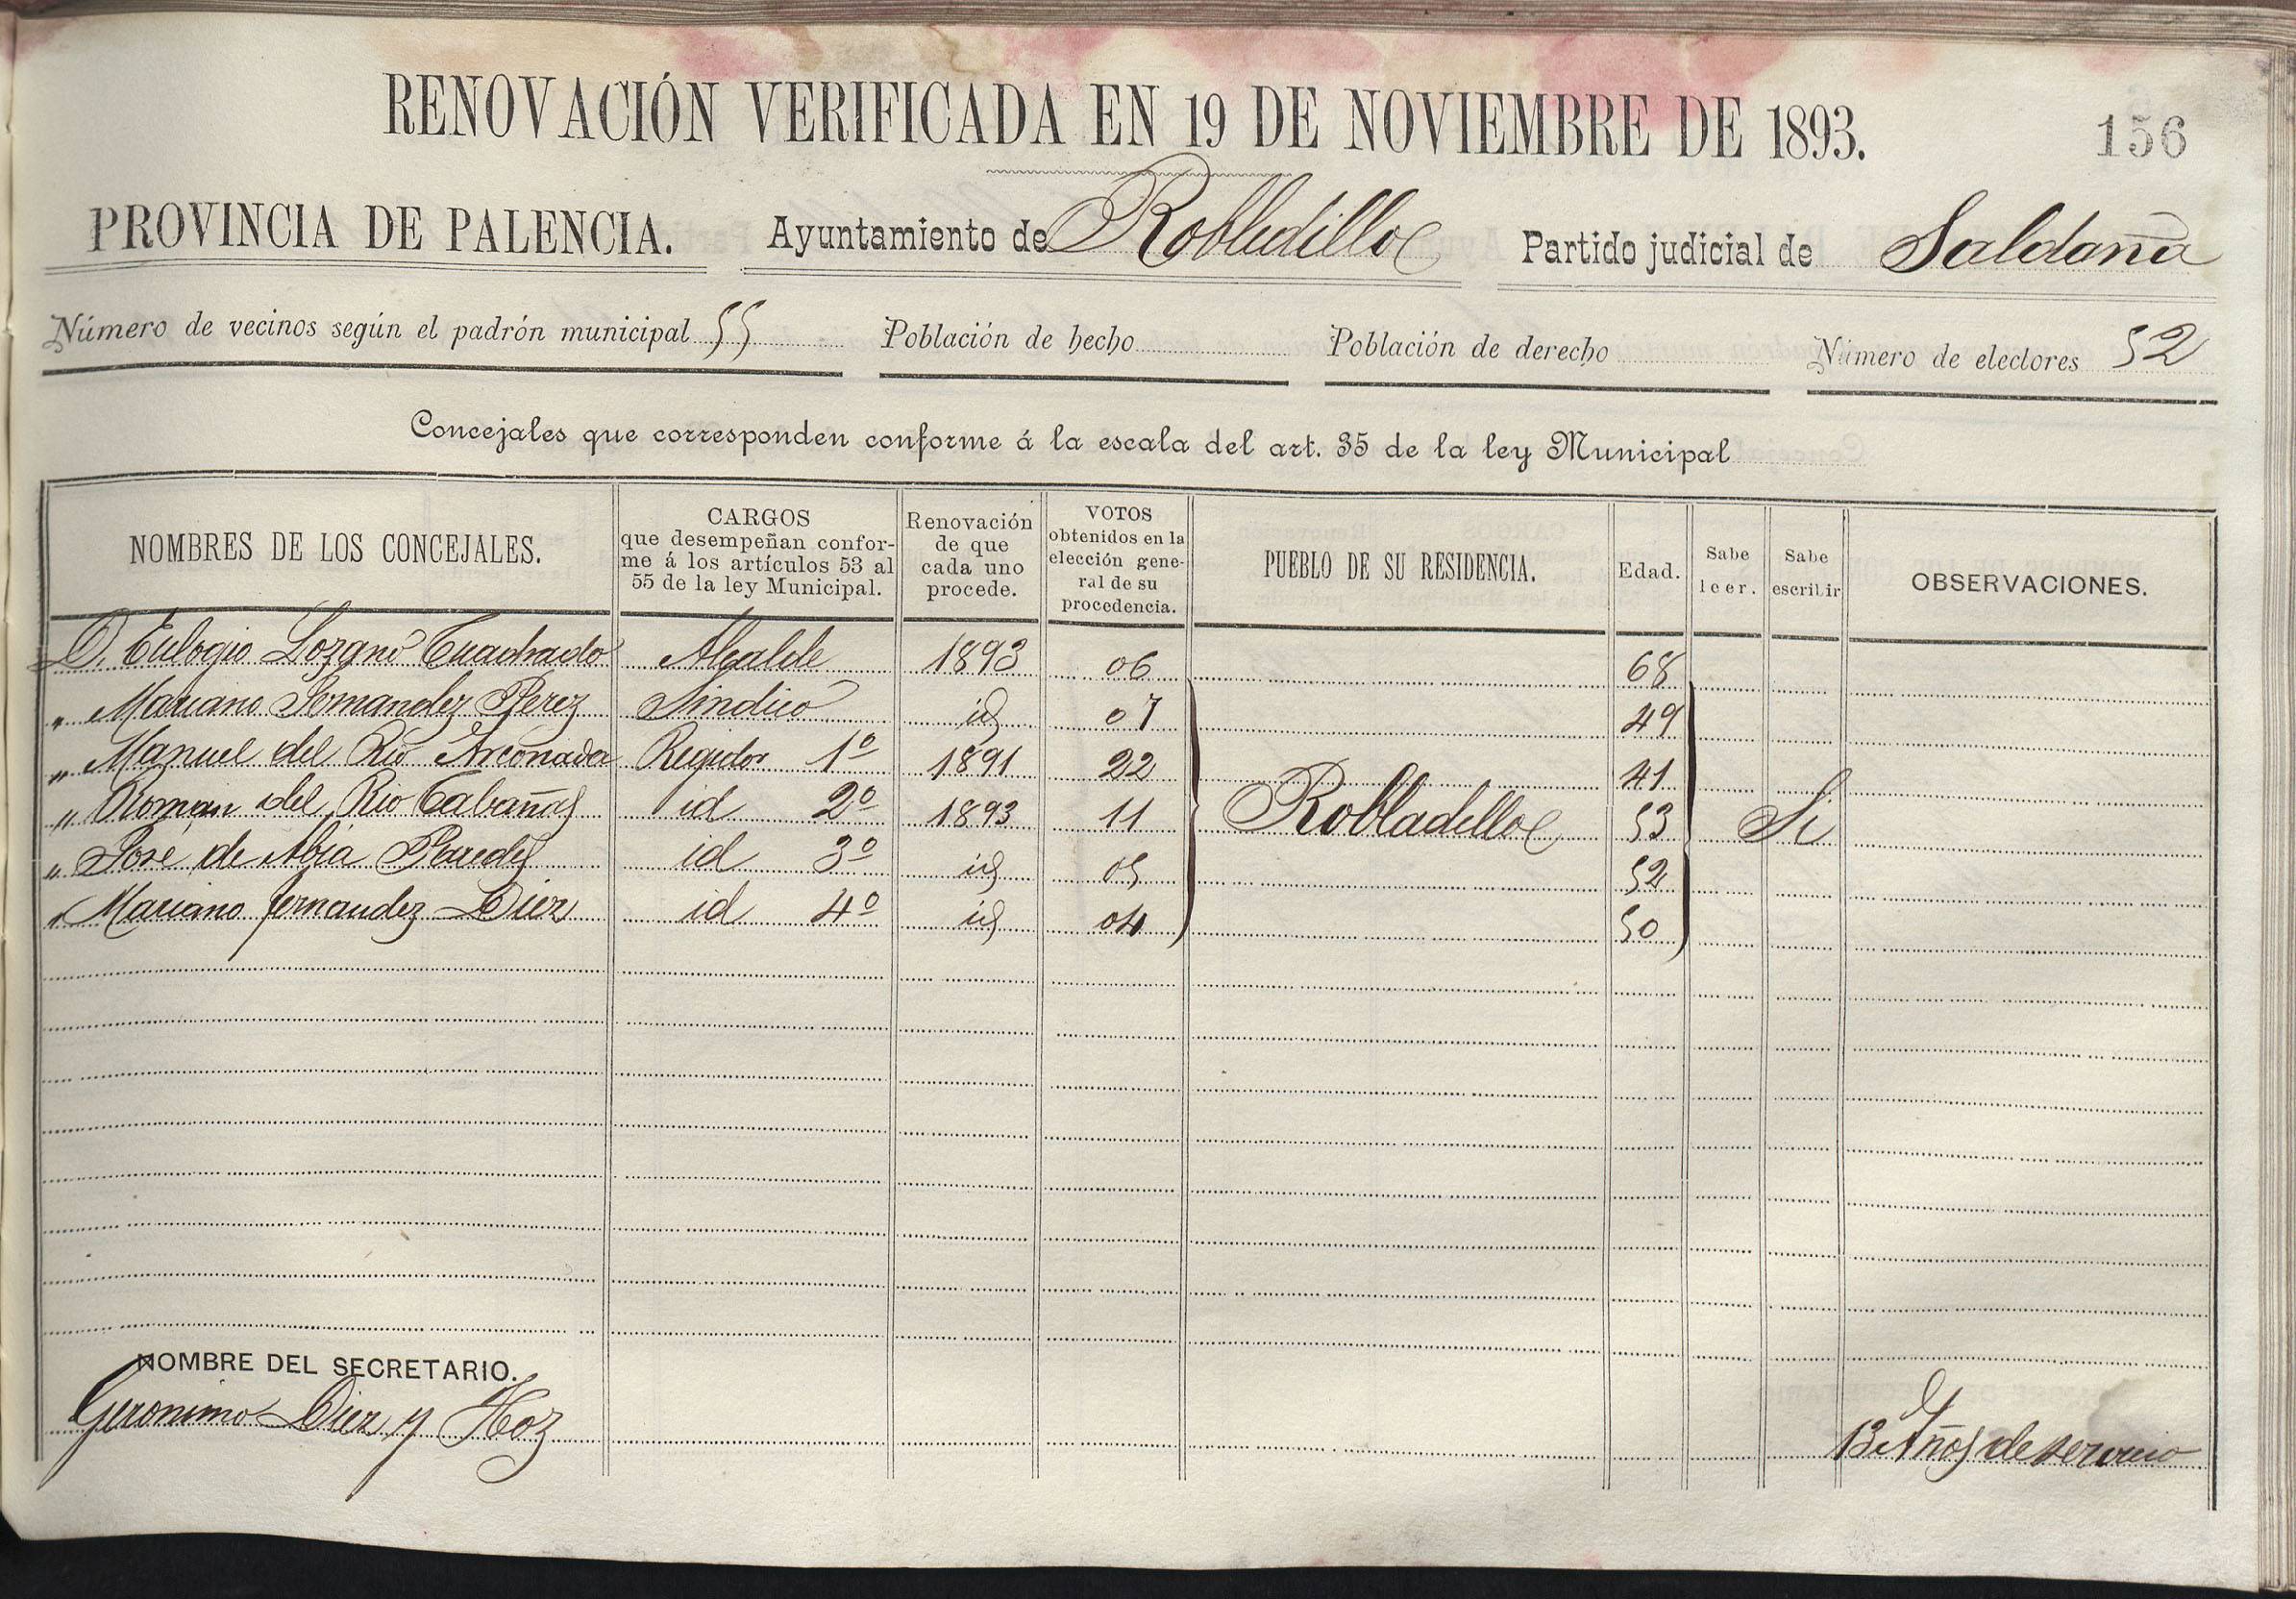 RENOVACIÓN VERIFICADA EN 19 DE NOVIEMBRE DE 1893.
156
PROVINCIA DE PALENCIA. Ayuntamiento de Robladillo Partido judicial de Saldaña
Número de vecinos según el padrón municipal 55 Población de hecho Población de derecho Número de electores 52
Concejales que corresponden conforme á la escala del art. 35 de la ley Municipal
NOMBRES DE LOS CONCEJALES.
CARGOS
que desempeñan confor-
me á los artículos 53 al
55 de la ley Municipal.
Renovación
de que
cada uno
procede.
VOTOS
obtenidos en la
elección gene-
ral de su
procedencia.
PUEBLO DE SU RESIDENCIA.
Edad.
Sabe
leer.
Sabe
escribir
OBSERVACIONES.
D. Eulogio Lozano Cuadrado Alcalde 1893 06 68
" Mariano Fernandez Perez Sindico id 07 49
" Manuel del Rio Arconada Regidor 1º 1891 22 41
" Roman del Rio Cabañas id 2º 1893 11 Robladillo 53 Si
" José de Abia Paredes id 3º id 05 52
" Mariano fernandez Diez id 4º id 04 50
NOMBRE DEL SECRETARIO.
Geronimo Diez y Hoz 13 Años de servicio